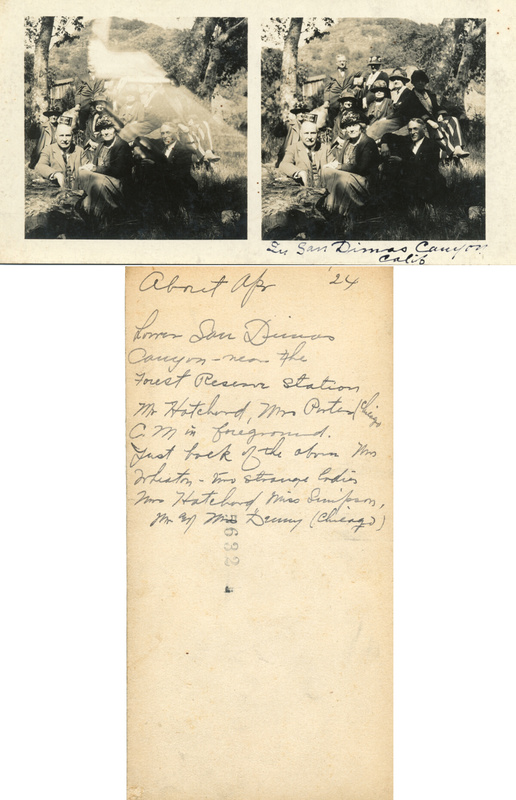 In San Dimas Canyon
Calif
About Apr '24
Lower San Dimas
Canyon - near the
Forest Reserve Station
Mr Hatchard, Mrs Porter (Chicago
C. M in foreground.
Just back of the above Mrs
Wheaton - two strange ladies
Mrs Hatchard Miss Simpson,
Mr & Mrs Denny (Chicago)
5632